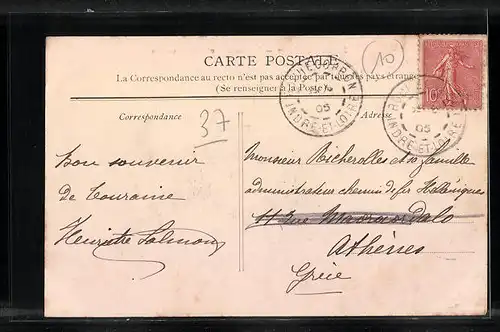 10
CARTE POSTALE
La Correspondance au recto n'est pas acceptée par tous les pays étrangers
(Se renseigner à la Poste)
ROCHECORBON
05
INDRE-ET-LOIRE
10
05
INDRE-ET-LOIRE
Correspondance
Adresse
37
Bon souvenir
de Touraine
Henriette Salmon
Monsieur Richerolles et sa famille
administrateur chemin de fer Helléniques
11 Rue
Athènes
Grèce